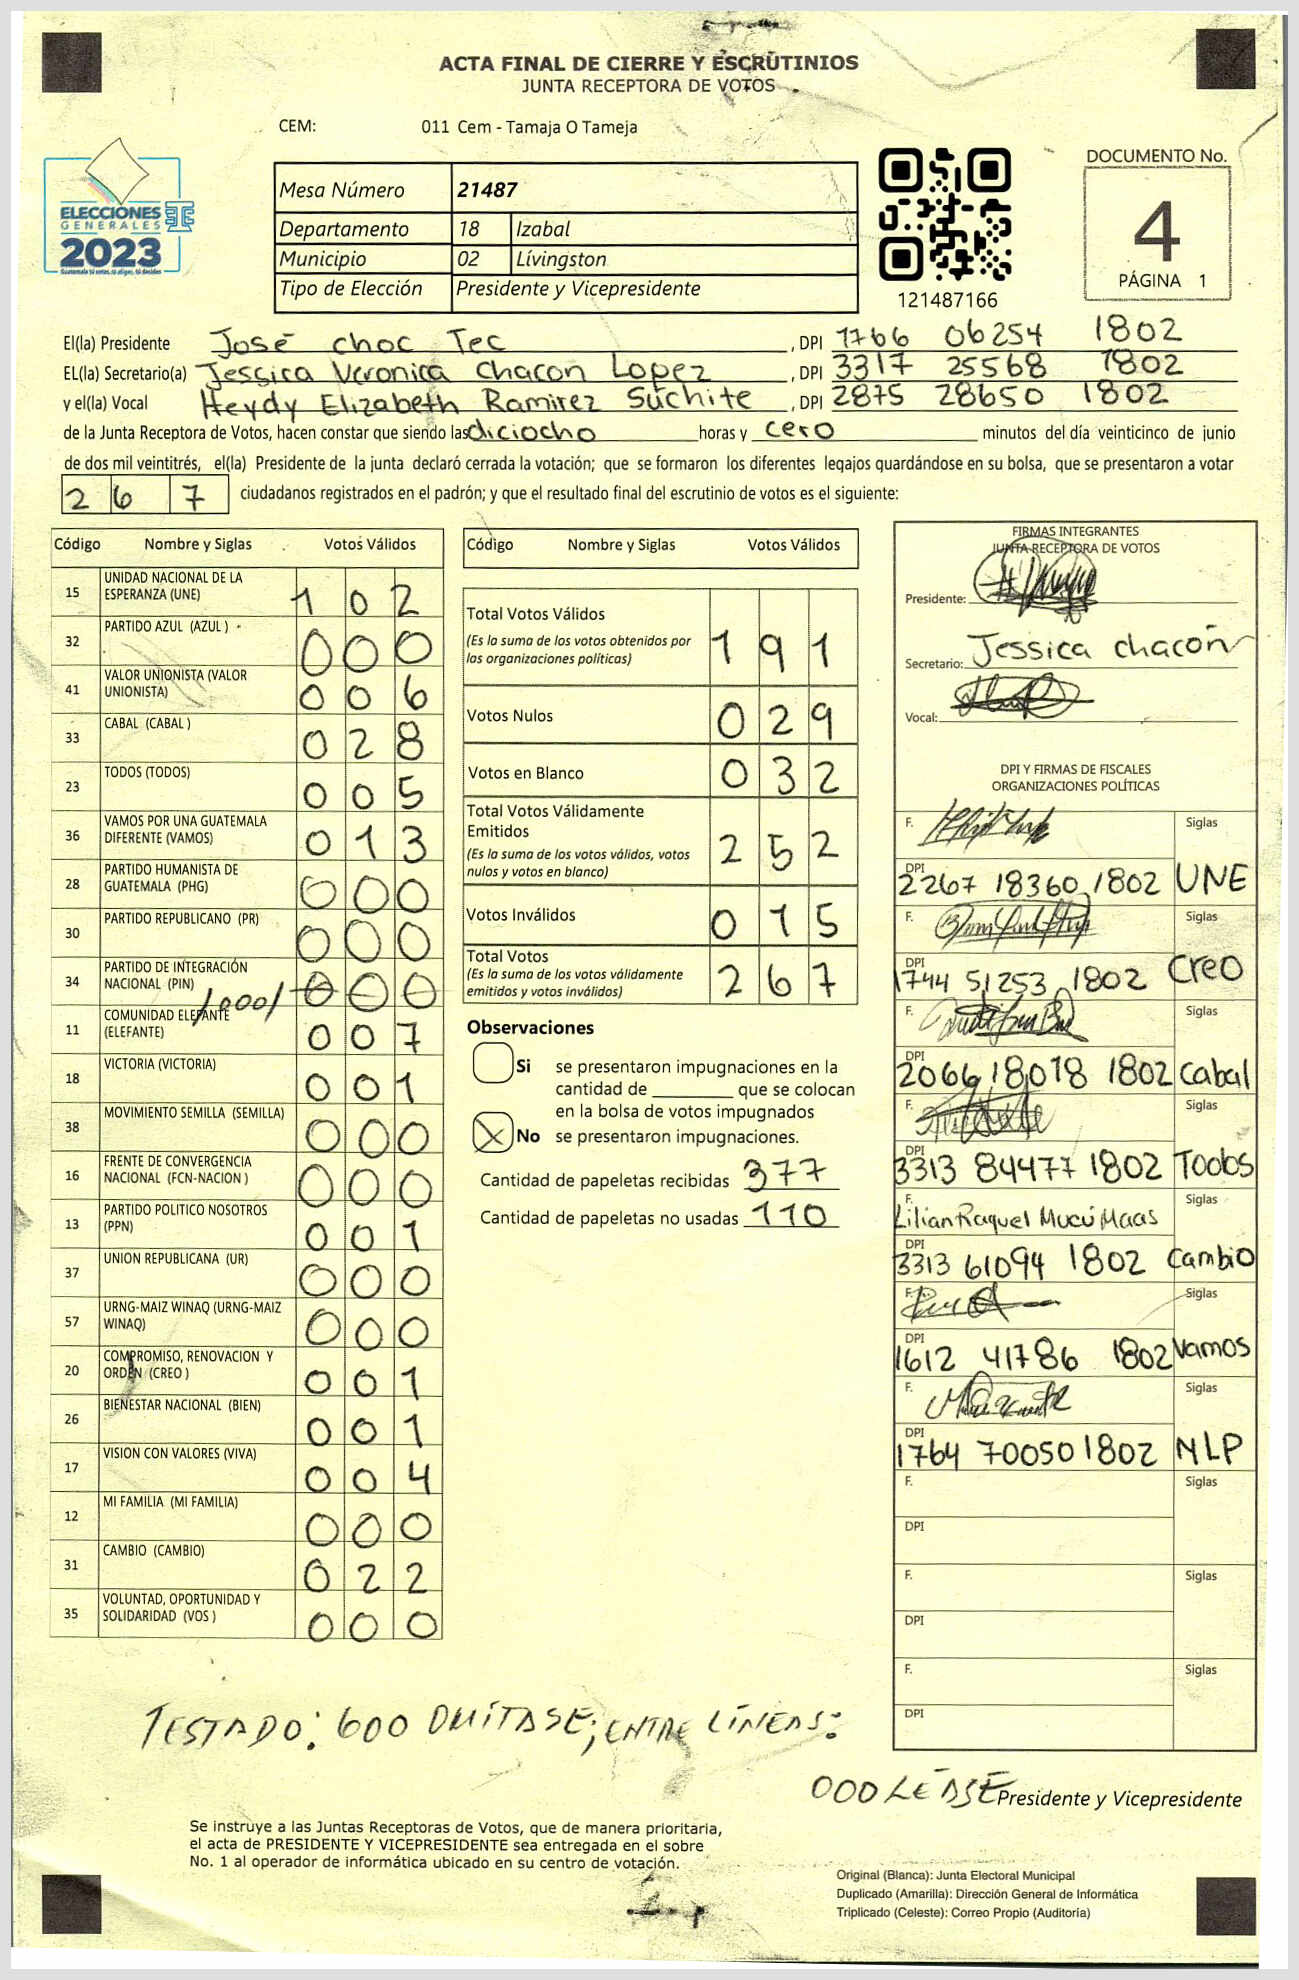 ACTA FINAL DE CIERRE Y ESCRUTINIOS
JUNTA RECEPTORA DE VOTOS
CEM: 011 Cem - Tamaja O Tameja
ELECCIONES
GENERALES
2023
Guatemala tú votas, tú eliges, tú decides
Mesa Número 21487
Departamento 18 Izabal
Municipio 02 Lívingston
Tipo de Elección Presidente y Vicepresidente
121487166
DOCUMENTO No.
4
PÁGINA 1
El(la) Presidente José choc Tec , DPI 1766 06254 1802
EL(la) Secretario(a) Jessica Veronica Chacon Lopez , DPI 3317 25568 1802
y el(la) Vocal Heydy Elizabeth Ramirez Suchite , DPI 2875 28650 1802
de la Junta Receptora de Votos, hacen constar que siendo las diciocho horas y cero minutos del día veinticinco de junio
de dos mil veintitrés, el(la) Presidente de la junta declaró cerrada la votación; que se formaron los diferentes legajos quardándose en su bolsa, que se presentaron a votar
2 6 7 ciudadanos registrados en el padrón; y que el resultado final del escrutinio de votos es el siguiente:
Código Nombre y Siglas Votos Válidos
15 UNIDAD NACIONAL DE LA ESPERANZA (UNE) 1 0 2
32 PARTIDO AZUL (AZUL ) 0 0 0
41 VALOR UNIONISTA (VALOR UNIONISTA) 0 0 6
33 CABAL (CABAL ) 0 2 8
23 TODOS (TODOS) 0 0 5
36 VAMOS POR UNA GUATEMALA DIFERENTE (VAMOS) 0 1 3
28 PARTIDO HUMANISTA DE GUATEMALA (PHG) 0 0 0
30 PARTIDO REPUBLICANO (PR) 0 0 0
34 PARTIDO DE INTEGRACIÓN NACIONAL (PIN) /000/ 0 0 0
11 COMUNIDAD ELEFANTE (ELEFANTE) 0 0 7
18 VICTORIA (VICTORIA) 0 0 1
38 MOVIMIENTO SEMILLA (SEMILLA) 0 0 0
16 FRENTE DE CONVERGENCIA NACIONAL (FCN-NACION ) 0 0 0
13 PARTIDO POLITICO NOSOTROS (PPN) 0 0 1
37 UNION REPUBLICANA (UR) 0 0 0
57 URNG-MAIZ WINAQ (URNG-MAIZ WINAQ) 0 0 0
20 COMPROMISO, RENOVACION Y ORDEN (CREO ) 0 0 1
26 BIENESTAR NACIONAL (BIEN) 0 0 1
17 VISION CON VALORES (VIVA) 0 0 4
12 MI FAMILIA (MI FAMILIA) 0 0 0
31 CAMBIO (CAMBIO) 0 2 2
35 VOLUNTAD, OPORTUNIDAD Y SOLIDARIDAD (VOS ) 0 0 0
Código Nombre y Siglas Votos Válidos
Total Votos Válidos
(Es la suma de los votos obtenidos por
las organizaciones políticas) 1 9 1
Votos Nulos 0 2 9
Votos en Blanco 0 3 2
Total Votos Válidamente
Emitidos
(Es la suma de los votos válidos, votos
nulos y votos en blanco) 2 5 2
Votos Inválidos 0 1 5
Total Votos
(Es la suma de los votos válidamente
emitidos y votos inválidos) 2 6 7
Observaciones
Si se presentaron impugnaciones en la
cantidad de ________ que se colocan
en la bolsa de votos impugnados
X No se presentaron impugnaciones.
Cantidad de papeletas recibidas 377
Cantidad de papeletas no usadas 110
FIRMAS INTEGRANTES
JUNTA RECEPTORA DE VOTOS
Presidente:
Secretario: Jessica chacón
Vocal:
DPI Y FIRMAS DE FISCALES
ORGANIZACIONES POLÍTICAS
F. Siglas
DPI 2267 18360 1802 UNE
F. Siglas
DPI 1744 51253 1802 Creo
F. Siglas
DPI 2066 18078 1802 Cabal
F. Siglas
DPI 3313 84477 1802 Todos
F. Lilian Raquel Mucú Maas Siglas
DPI 3313 61094 1802 Cambio
F. Siglas
DPI 1612 41786 1802 Vamos
F. Siglas
DPI 1764 70050 1802 NLP
F. Siglas
DPI
F. Siglas
DPI
F. Siglas
DPI
TESTADO: 600 OMÍTASE; ENTRE LÍNEAS:
000 LÉASE
Presidente y Vicepresidente
Se instruye a las Juntas Receptoras de Votos, que de manera prioritaria,
el acta de PRESIDENTE Y VICEPRESIDENTE sea entregada en el sobre
No. 1 al operador de informática ubicado en su centro de votación.
Original (Blanca): Junta Electoral Municipal
Duplicado (Amarilla): Dirección General de Informática
Triplicado (Celeste): Correo Propio (Auditoría)